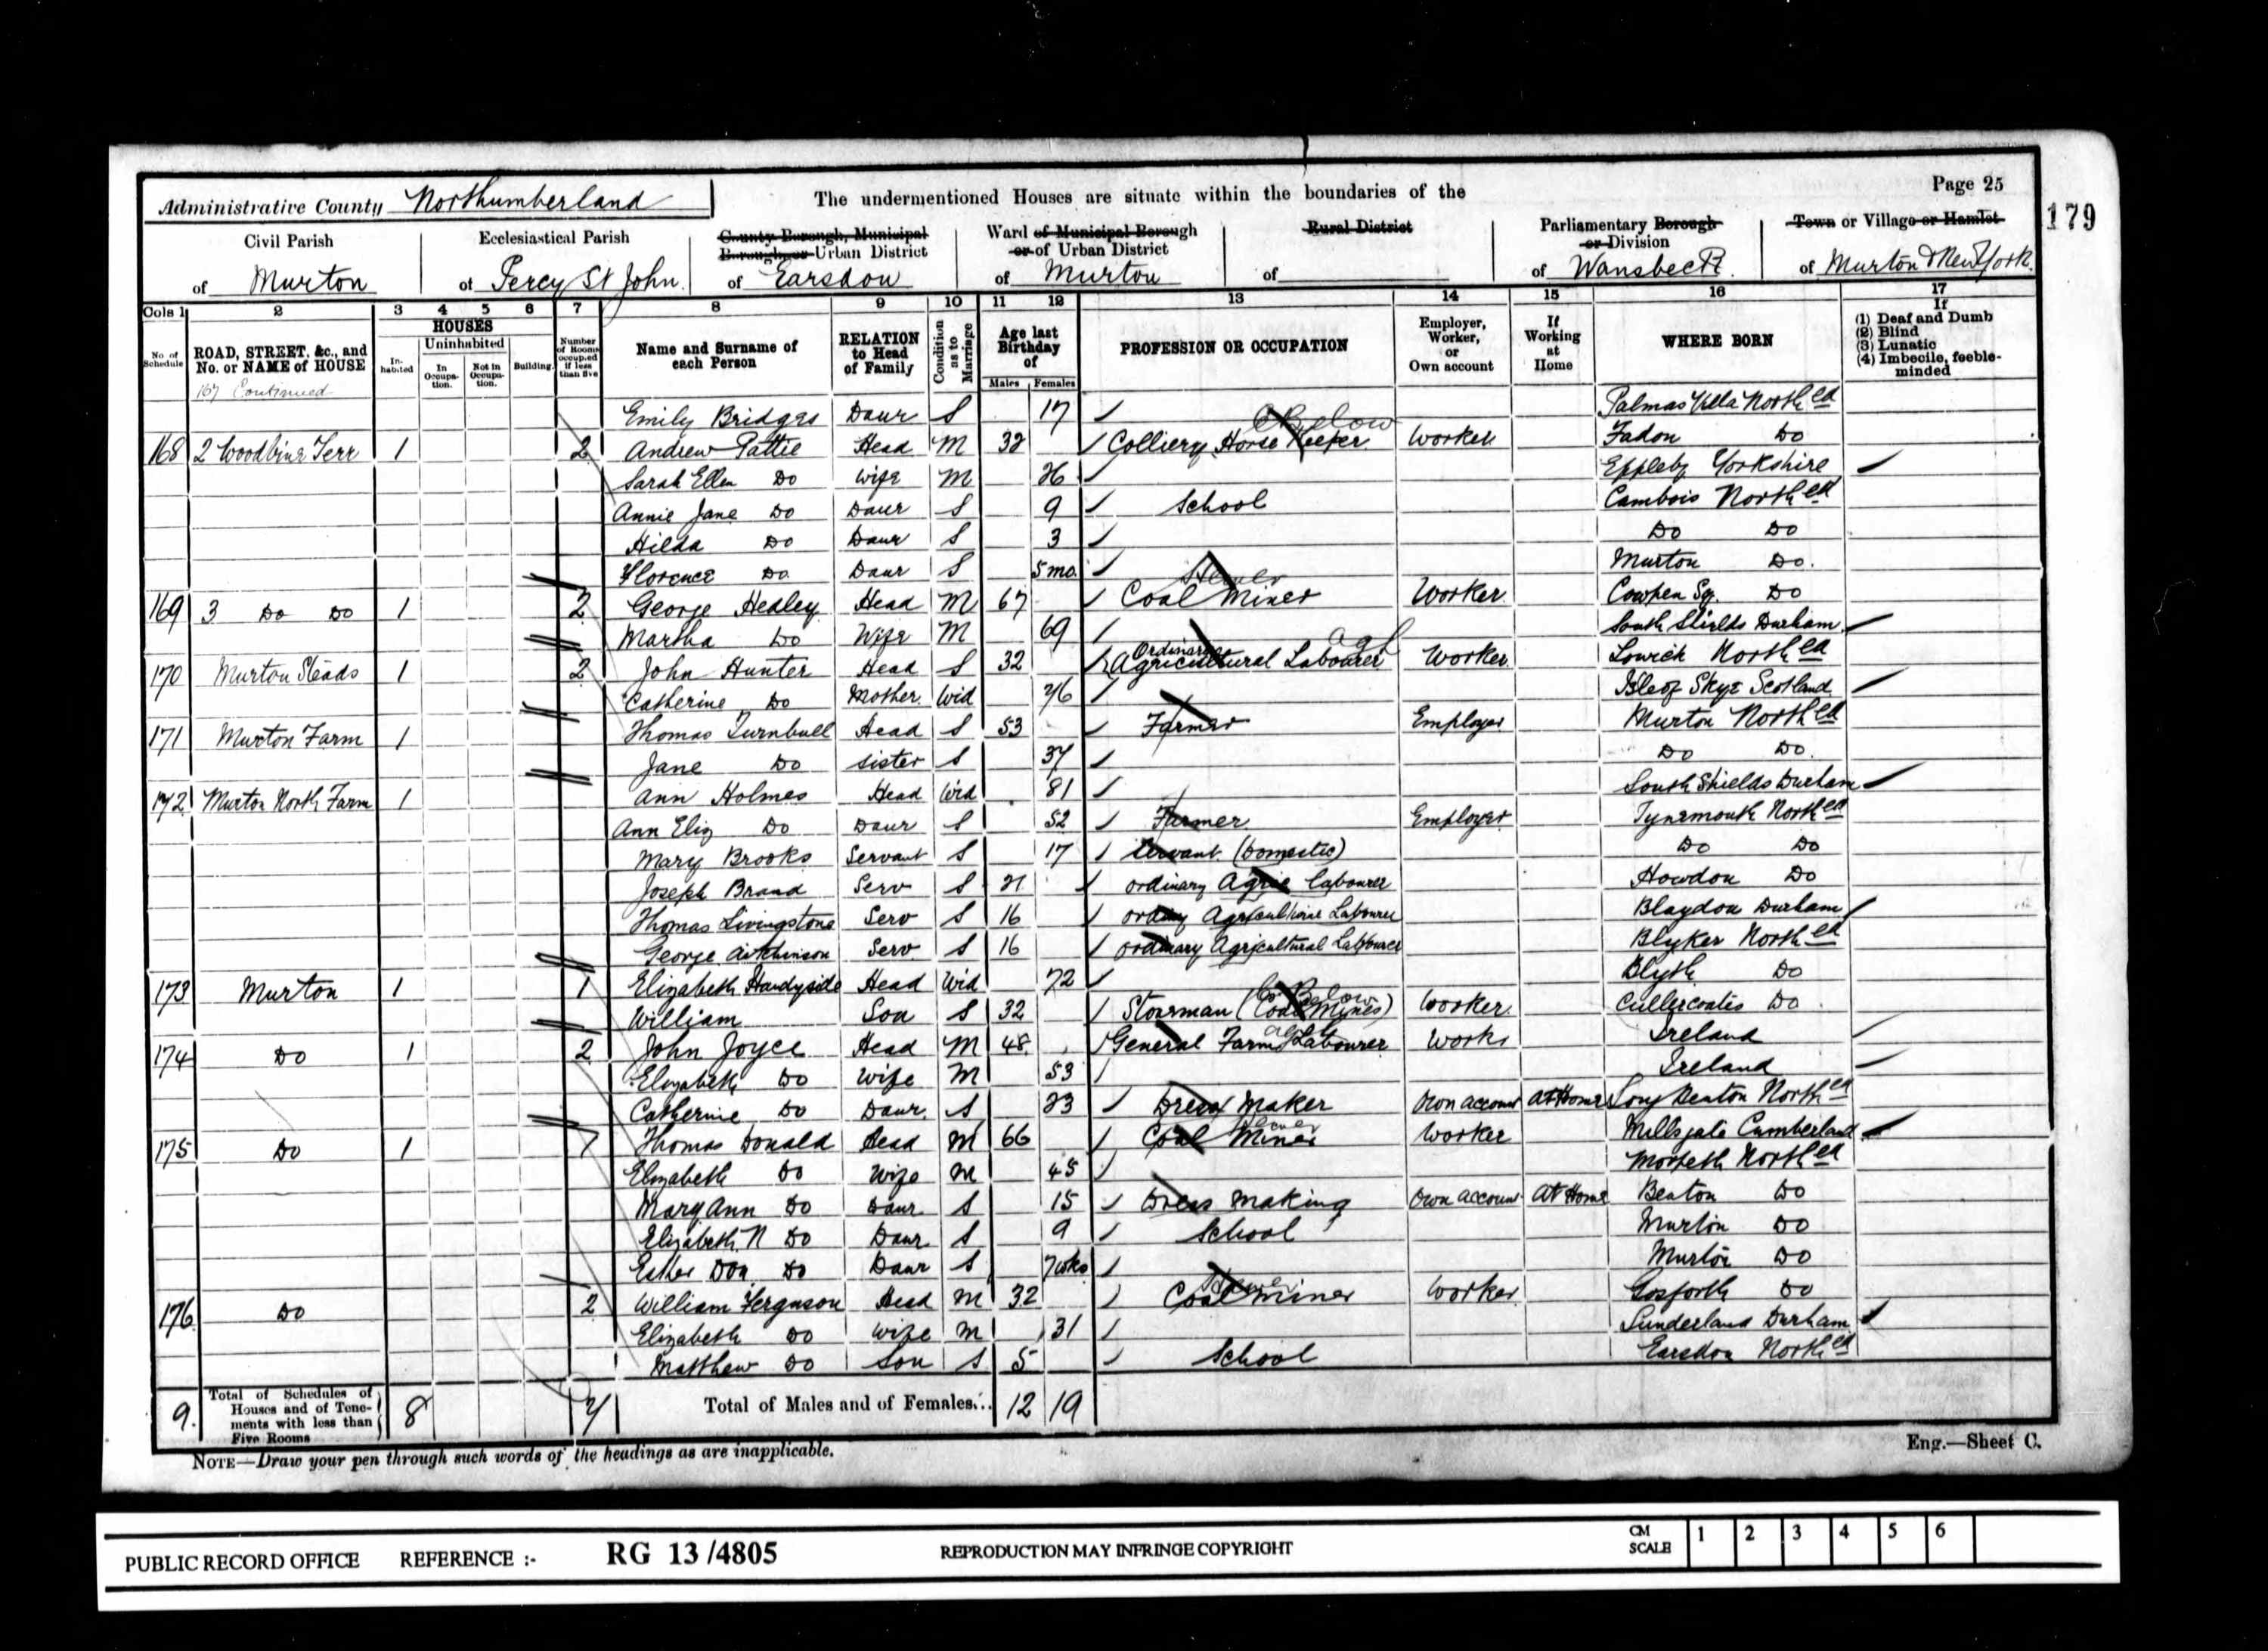 Page 25
179
Administrative County Northumberland
The undermentioned Houses are situate within the boundaries of the
Civil Parish of Murton
Ecclesiastical Parish of Percy St John.
County Borough, Municipal Borough or Urban District of Earsdon
Ward of Municipal Borough or of Urban District of Murton
Rural District of
Parliamentary Borough or Division of Wansbeck
Town or Village or Hamlet of Murton & New York
Cols 1 2 3 4 5 6 7 8 9 10 11 12 13 14 15 16 17
No of Schedule
ROAD, STREET, &c., and No. or NAME of HOUSE
HOUSES
Inhabited
Uninhabited
In Occupation.
Not in Occupation.
Building.
Number of Rooms occupied if less than five
Name and Surname of each Person
RELATION to Head of Family
Condition as to Marriage
Age last Birthday of
Males Females
PROFESSION OR OCCUPATION
Employer, Worker, or Own account
If Working at Home
WHERE BORN
If
(1) Deaf and Dumb
(2) Blind
(3) Lunatic
(4) Imbecile, feeble-minded
167 Continued
Emily Bridges Daur S 17 Palmas Villa Northed
168 2 Woodbine Terr 1 2 Andrew Pattie Head M 32 Colliery Horse Keeper Below Worker Do
Sarah Ellen Do Wife M 26 Eppleby Yorkshire
Annie Jane Do Daur S 9 School Cambois Northed
Hilda Do Daur S 3 Do Do
Florence Do Daur S 5 mo. Murton Do.
169 3 Do Do 1 2 George Hedley Head M 67 Coal Miner Hewer Worker Cowpen Sq. Do
Martha Do Wife M 69 South Shields Durham
170 Murton Steads 1 2 John Hunter Head S 32 Ordinary Agricultural Labourer agl Worker Lowick Northed
Catherine Do Mother Wid 76 Isle of Skye Scotland
171 Murton Farm 1 Thomas Turnbull Head S 53 Farmer Employer Murton Northed
Jane Do Sister S 37 Do Do.
172 Murton North Farm 1 Ann Holmes Head Wid 81 South Shields Durham
Ann Eliz Do Daur S 52 Farmer Employer Tynemouth Northed
Mary Brooks Servant S 17 Servant (Domestic) Do Do
Joseph Brand Serv S 21 ordinary Agric labourer Howdon Do
Thomas Livingstone Serv S 16 Agricultural Labourer Blaydon Durham
George Aitchinson Serv S 16 ordinary Agricultural Labourer Blyker Northed
173 Murton 1 1 Elizabeth Handyside Head Wid 72 Blyth Do
William Son S 32 Stoneman (Coal Mines) Below Worker Cullercoats Do
174 Do 1 2 John Joyce Head M 48 General Farm Labourer Works Ireland
Elizabeth Do Wife M 53 Ireland
Catherine Do Daur S 23 Dress Maker Own account At Home Long Benton Northed
175 Do 1 Thomas Donald Head M 66 Coal Miner Hewer Worker Cumberland
Elizabeth Do Wife M 45 Morpeth Northed
Mary Ann Do Daur S 15 Dress Making Own account At Home Benton Do
Elizabeth N Do Daur S 9 School Murton Do
Esther Do Daur S 7 wks Murton Do
176 Do 2 William Ferguson Head M 32 Coal Miner Hewer Worker Gosforth Do
Elizabeth Do Wife M 31 Sunderland Durham
Matthew Do Son S 5 School Earsdon Northed
9. Total of Schedules of Houses and of Tenements with less than Five Rooms 8 7 Total of Males and of Females... 12 19
NOTE—Draw your pen through such words of the headings as are inapplicable.
Eng.—Sheet C.
PUBLIC RECORD OFFICE REFERENCE :- RG 13/4805 REPRODUCTION MAY INFRINGE COPYRIGHT CM SCALE 1 2 3 4 5 6